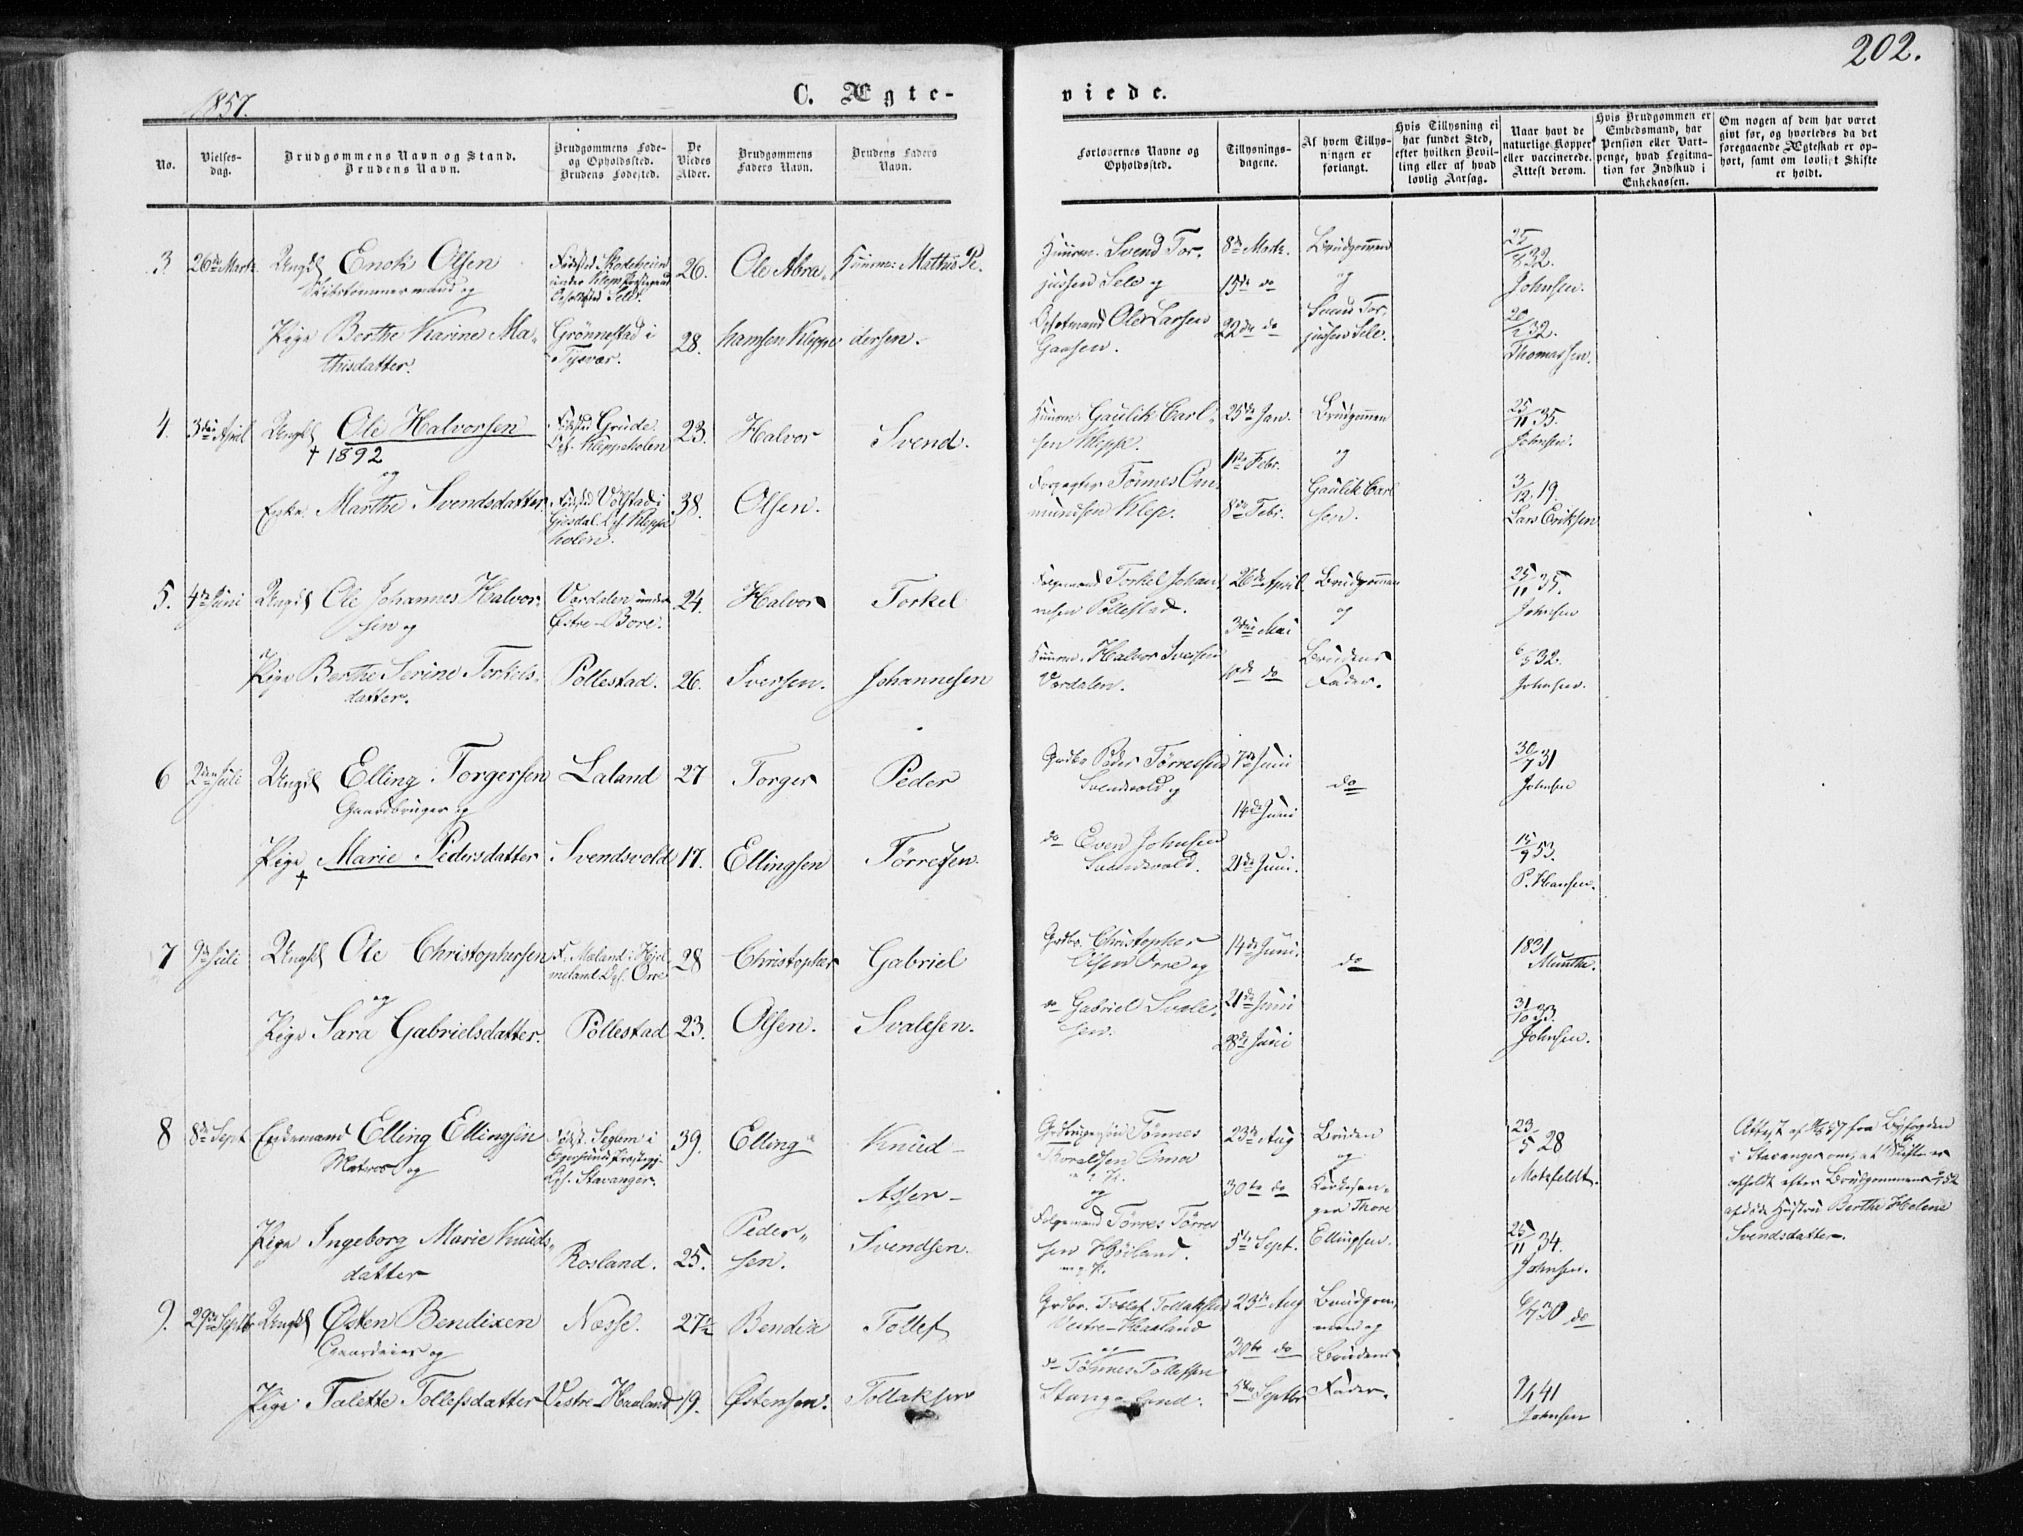 202.
1857.
C. Ægte-
viede.
No.
Vielses-
dag.
Brudgommens Navn og Stand.
Brudens Navn.
Brudgommens Føde-
og Opholdssted.
Brudens Fødested.
De
Viedes
Alder.
Brudgommens
Faders Navn.
Brudens Faders
Navn.
Forlovernes Navne og
Opholdssted.
Tillysnings-
dagene.
Af hvem Tillys-
ningen er
forlangt.
Hvis Tillysning ei
har fundet Sted,
efter hvilken Bevil-
ling eller af hvad
lovlig Aarsag.
Naar havt de
naturlige Kopper
eller vaccinerede.
Attest derom.
Hvis Brudgommen er
Embedsmand, har
Pension eller Vart-
penge, hvad Legitima-
tion for Indskud i
Enkekassen.
Om nogen af dem har været
givt før, og hvorledes da det
foregaaende Ægteskab er op-
hørt, samt om lovligt Skifte
er holdt.
3
26de Marts
Ungk Enok Olsen
Skibstømmermand og
Pige Berthe Karine Ma-
thisdatter.
Opholdssted Sele.
Grønnestad i
Tysvær.
26.
28.
Ole Abra-
hamsen Kleppe
Huusm: Mathis Pe-
dersen.
Huusm. Svend Tor-
jussen Sele og
Ole Larsen
8de Marts.
15de do
22de do
Brudgommen
og
Svend Tor-
jussen Sele.
25/8 32.
Johnsen.
20/ 32.
Thomassen.
4.
3die April
Ungk Ole Halvorsen
† 1892
og
Enke. Marthe Svendsdatter
Fødested Grude.
Oph. Kleppeholen
Fødested Vølstad i
Gjesdal. Oph. Kleppe
holen.
23.
38.
Halvor
Olsen.
Svend.
Huusm. Gaulik Carl-
sen Kleppe.
Tønnes Om-
mundsen Klep.
25de Jan.
1ste Febr.
8de Febr.
Brudgommen
og
Gaulik Carl
sen.
25/11 35.
Johnsen.
3/12 19.
Lars Eriksen
5.
4de Juni
Ungk Ole Johannes Halvor-
sen og
Pige Berthe Serine Torkels-
datter.
Vardalen under
Østre-Bore.
Pollestad.
24.
26.
Halvor
Iversen.
Torkel
Johannesen
Torkel Johan-
nesen Pollestad.
Huusm. Halvor Iversen
Vardalen.
26de April
3die Mai
10de do
Brudgommen
og
Brudens
Fader.
25/11 35.
Johnsen
6/ 32.
Johnsen.
6
2den Juli
Ungk Elling Torgersen
Gaardbruger og
Pige Marie Pedersdatter
†
Laland
Svendsvold
27
17.
Torger
Ellingsen
Peder
Tørresen.
Grdbr. Peder Tørresen
Svendsvold og
do Even Johnsen
Svendsvold.
7de Juni
14de Juni
21de Juni.
do
30/7 31
Johnsen
15/9 53.
P. Hansen.
7
9de Juli
Ungk Ole Christophersen
og
Pige Sara Gabrielsdatter.
F. Mæland i Hjel-
meland. Oph. Orre
Pollestad
28
23.
Christopher
Olsen.
Gabriel
Svalesen.
Grdbr. Christopher
Olsen Orre og
do Gabriel Svale-
sen.
14de Juni.
21de Juni
28de Juni
do
1831
Munthe.
31/10 33.
Johnsen.
8
8de Sept
Enkemand Elling Ellingsen
Matros og
Pige Ingeborg Marie Knuds-
datter
Fødest. Seglem i
Egersund Præstegj.
Oph. Stavanger.
Rosland.
39.
25.
Elling
Peder-
sen.
Knud
Asser-
Svendsen.
Tønnes
Thoralfsen Oma
og
Tørres Tørres
sen Høiland.
m. p. P.
23de Aug
30te do
5te Sept.
Bruden
og
Thore
Ellingsen.
23/5 28
Motzfeldt.
25/11 34.
Johnsen.
Attest af 57 fra Byfogden
i Stavanger om, at Skifte er
afholdt efter Brudgommens 52
afdøde Hustru Berthe Helene
Svendsdatter.
9.
29de Septbr
Ungk Østen Bendixen
Gaardeier og
Pige Talette Tollefsdatter
Næsse.
Vestre-Haaland
27½
19.
Bendix
Østensen.
Tollef
Tollaksen
Grdbr. Tollef Tollaksen
Vestre-Haaland
og
do Tønnes Tollefsen
Stangeland.
23de Aug
30te do
5te Septbr
Brudgom-
men og
Brudens
Fader.
6/7 30 do
9/ 41
Johnsen